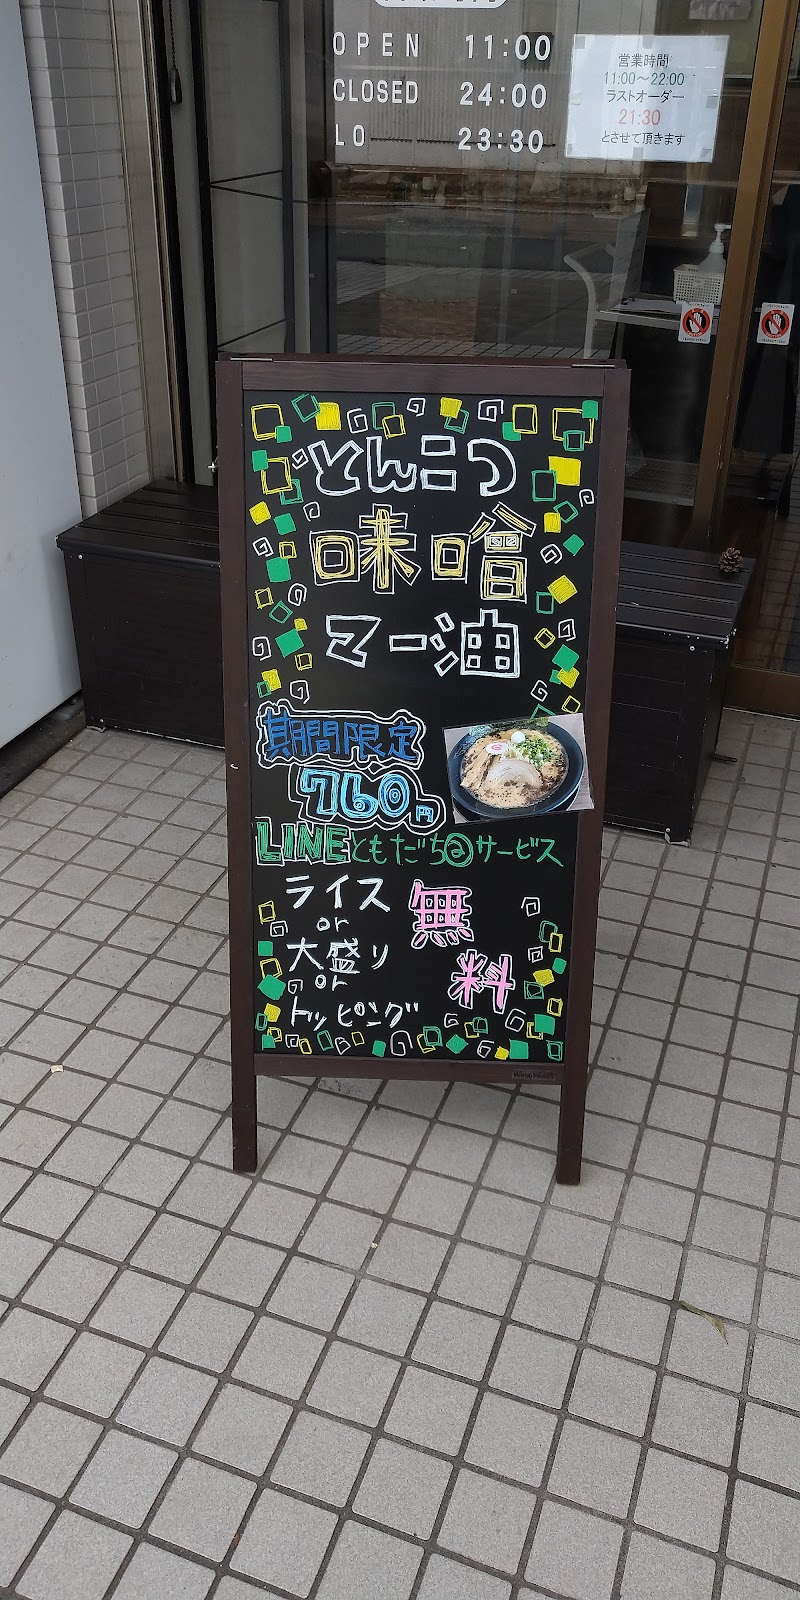 OPEN 11:00
CLOSED 24:00
LO 23:30
営業時間
11:00～22:00
ラストオーダー
21:30
とさせて頂きます
とんこつ
味噌
マー油
期間限定
760円
LINEともだち@サービス
ライス
or
大盛り
or
トッピング
無料